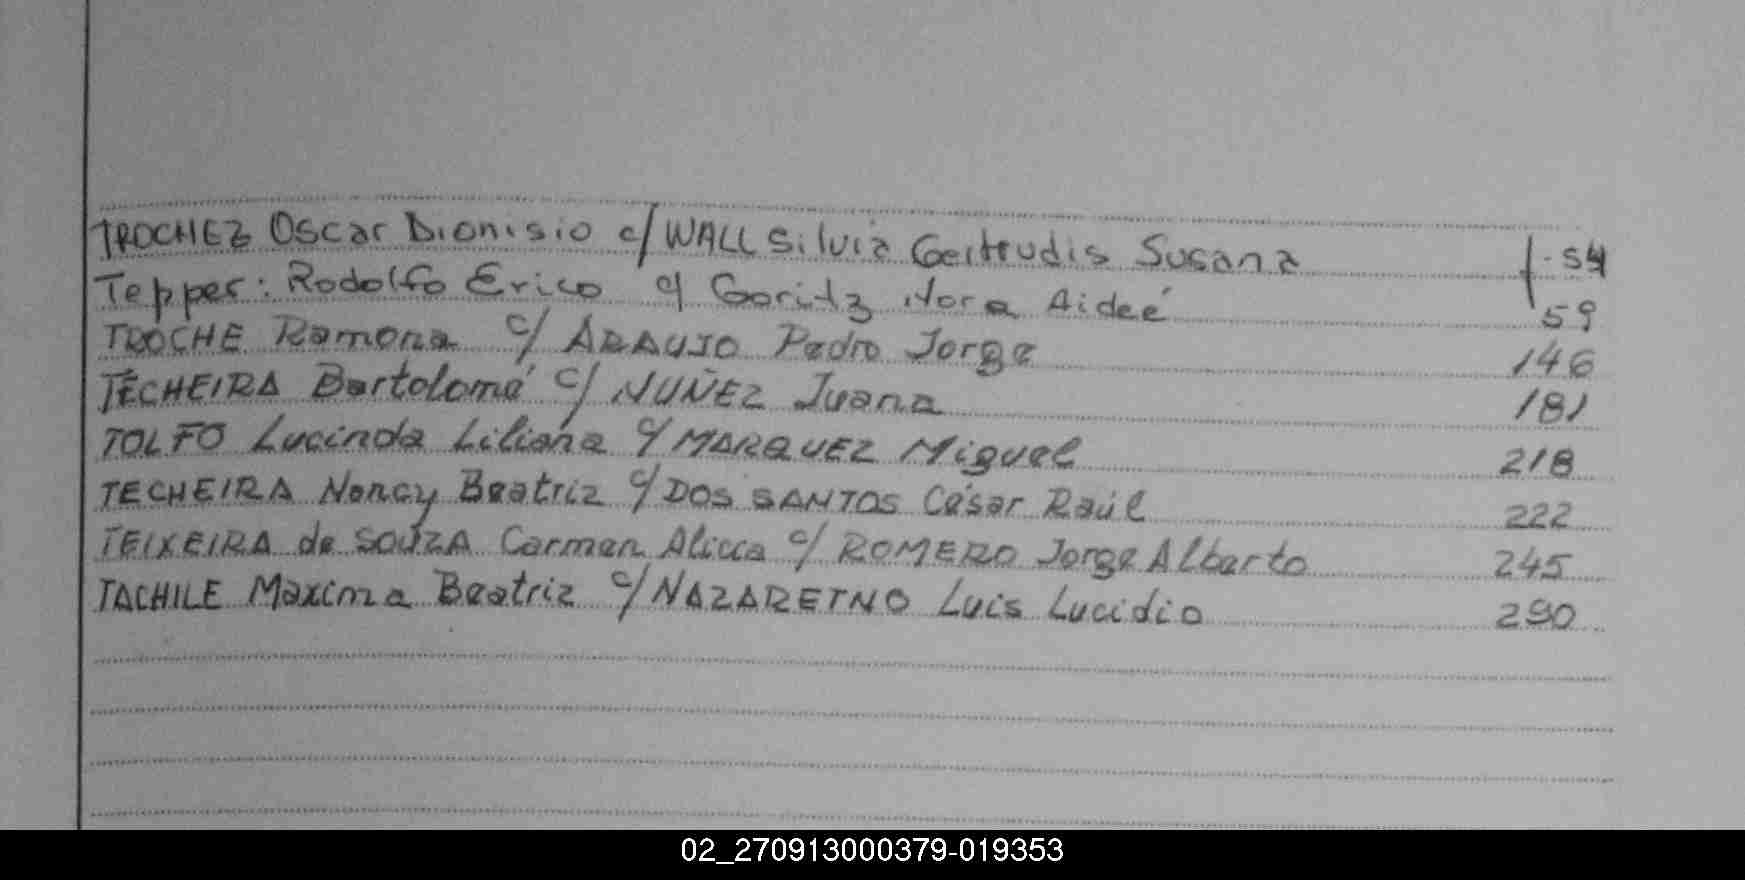 TROCHEZ Oscar Dionisio c/ WALL Silvia Gertrudis Susana f. 54
Tepper: Rodolfo Erico c/ Goritz Nora Aideé 59
TROCHE Ramona c/ ARAUJO Pedro Jorge 146
TECHEIRA Bartolomé c/ NUÑEZ Juana 181
TOLFO Lucinda Liliana c/ MARQUEZ Miguel 218
TECHEIRA Nancy Beatriz c/ DOS SANTOS César Raúl 222
TEIXEIRA de SOUZA Carmen Alicia c/ ROMERO Jorge Alberto 245
TACHILE Maxima Beatriz c/ NAZARETNO Luis Lucidio 290
02_270913000379-019353